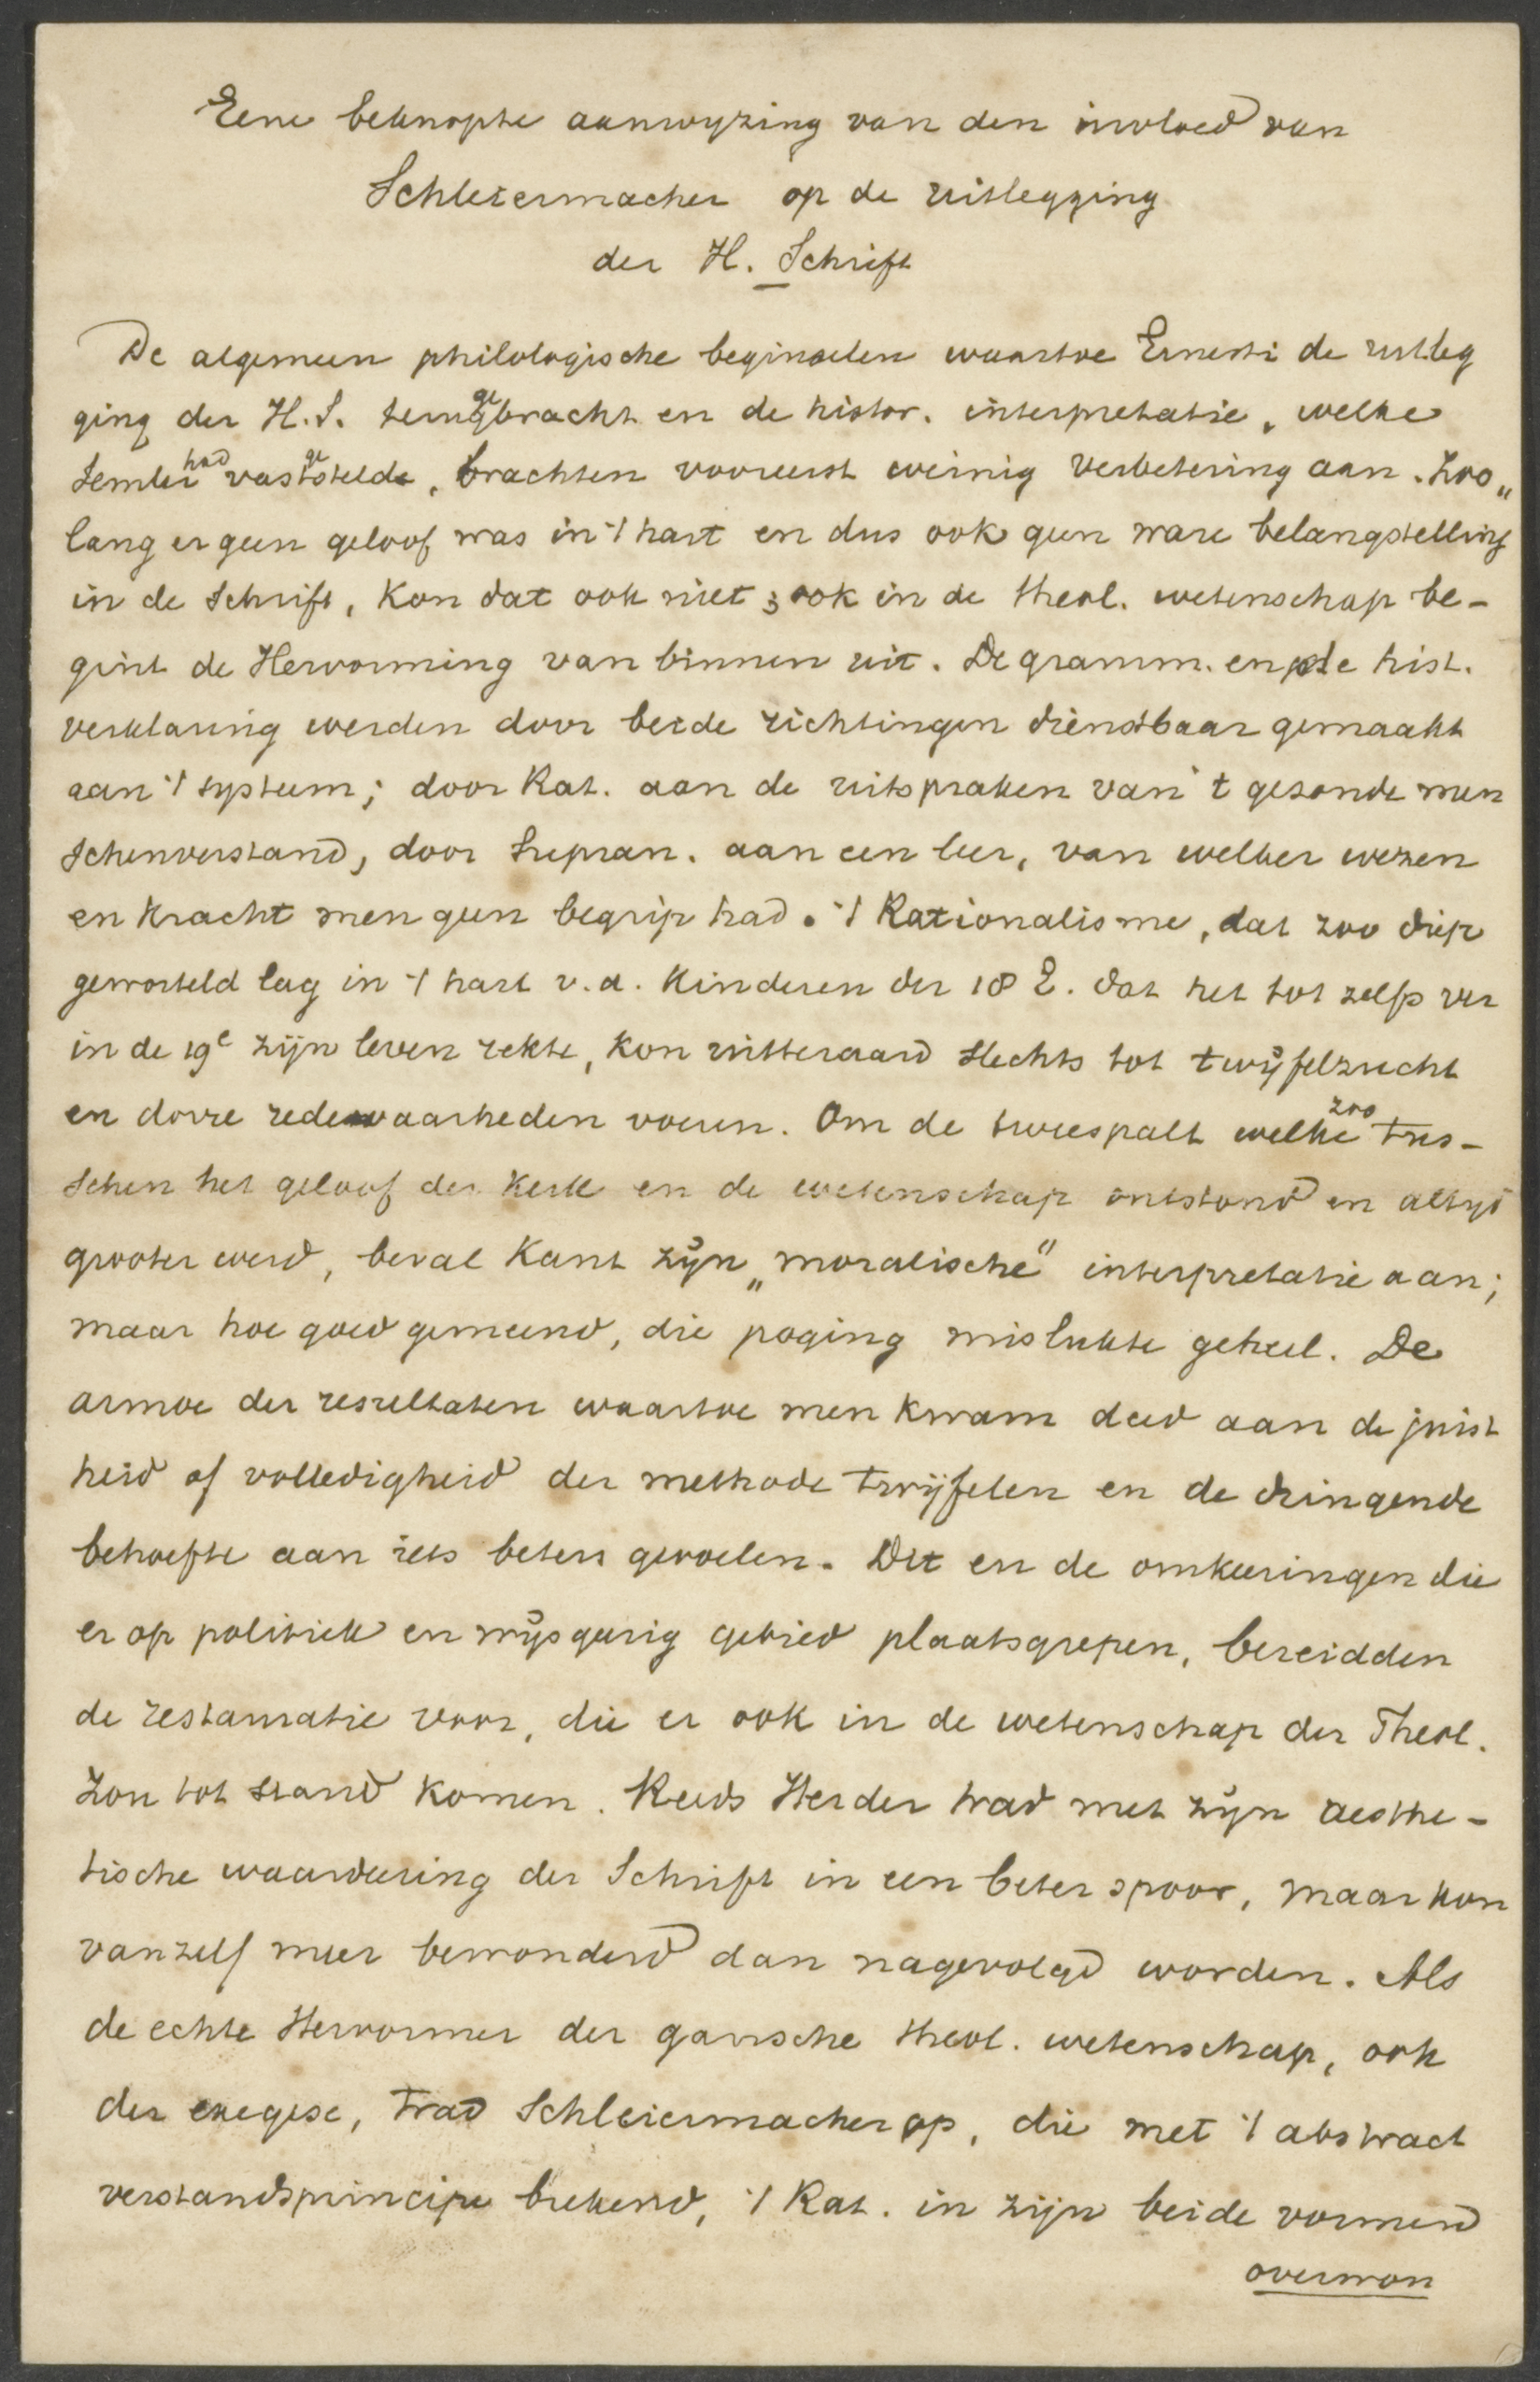 Eene beknopte aanwyzing van den invloed van
Schleiermacher op de uitlegging
der H. Schrift
De algemeen philologische beginselen waartoe Ernesti de uitleg
ging der H.S. teruggebracht en de histor. interpretatie, welke
Semler had vastgesteld, brachten vooreerst weinig verbetering aan. Zoo„
lang er geen geloof was in 't hart en dus ook geen ware belangstelling
in de Schrift, kon dat ook niet; ook in de theol. wetenschap be-
gint de Hervorming van binnen uit. De gramm. en de hist.
verklaring werden door beide richtingen dienstbaar gemaakt
aan 't systeem; door Rat. aan de uitspraken van 't gezonde men
schenverstand, door Supran. aan een leer, van welker wezen
en kracht men geen begrip had. 't Rationalisme, dat zoo diep
geworteld lag in 't hart v.d. kinderen der 18 E. dat het tot zelfs ver
in de 19e zijn leven rekte, kon uitteraard slechts tot twijfelzucht
en dorre redewaarheden voeren. Om de tweespalt welke zoo tus-
schen het geloof der Kerk en de wetenschap ontstond en altyd
grooter werd, beval Kant zijn „moralische" interpretatie aan;
maar hoe goed gemeend, die poging mislukte geheel. De
armoe der resultaten waartoe men kwam deed aan de juist
heid of volledigheid der methode twijfelen en de dringende
behoefte aan iets beters gevoelen. Dit en de omkeeringen die
er op politiek en wijsgeerig gebied plaatsgrepen, bereidden
de restauratie voor, die er ook in de wetenschap der Theol.
zou tot stand komen. Reeds Herder trad met zijn aesthe-
tische waardeering der Schrift in een beter spoor, maar kon
vanzelf meer bewonderd dan nagevolgd worden. Als
de echte Hervormer der gansche theol. wetenschap, ook
der exegese, trad Schleiermacher op, die met 't abstract
verstandsprincipe brekend, 't Rat. in zijn beide vormen
overwon